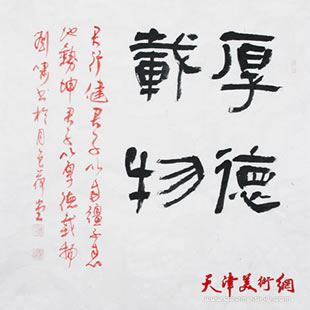 厚德
載物
天行健君子以自彊不息
地勢坤君子以厚德載物
书於月色荷堂
天津美術網